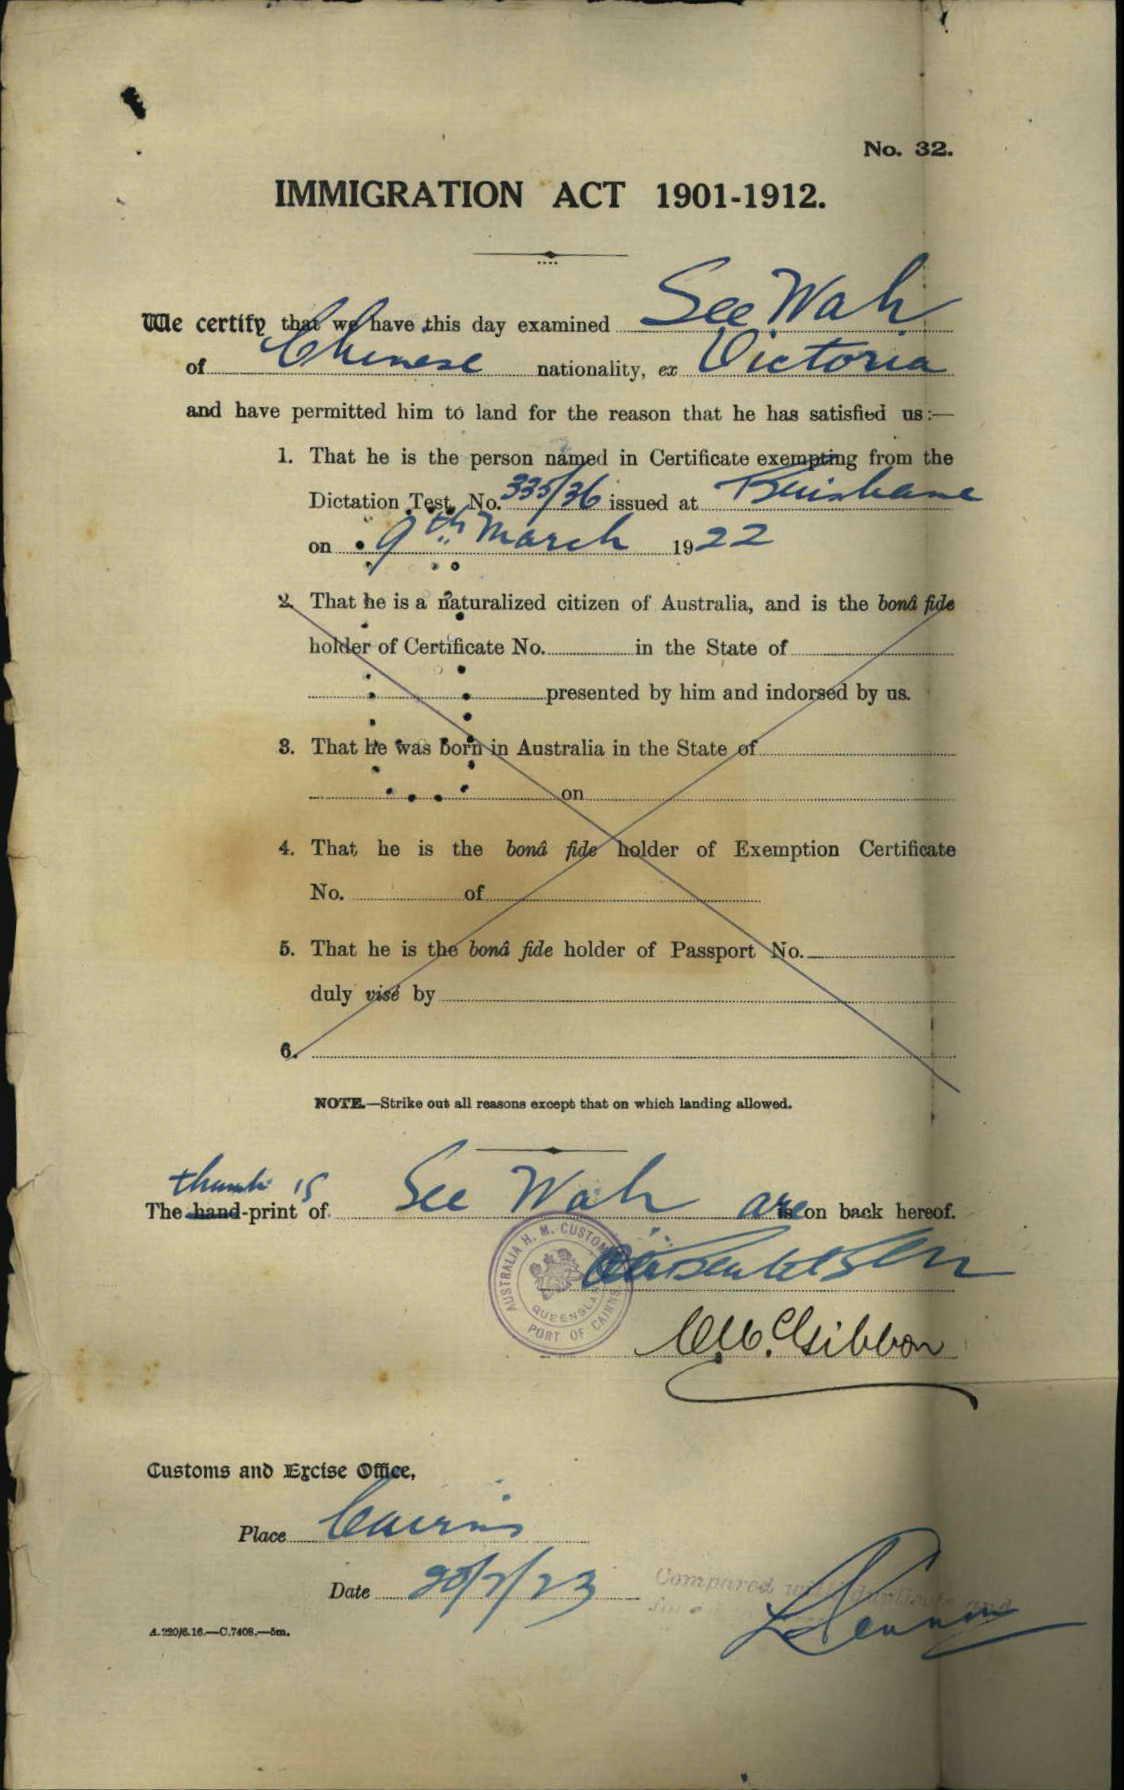 No. 32.
IMMIGRATION ACT 1901-1912.
We certify that we have this day examined See Wah
of Chinese nationality, ex Victoria
and have permitted him to land for the reason that he has satisfied us:—
1. That he is the person named in Certificate exempting from the
Dictation Test, No. 335/36 issued at Brisbane
on 9th March 1922
2. That he is a naturalized citizen of Australia, and is the bonâ fide
holder of Certificate No. in the State of
presented by him and indorsed by us.
3. That he was born in Australia in the State of
on
4. That he is the bonâ fide holder of Exemption Certificate
No. of
5. That he is the bonâ fide holder of Passport No.
duly visé by
6.
NOTE.—Strike out all reasons except that on which landing allowed.
thumb is
The hand-print of See Wah are is on back hereof.
AUSTRALIA H. M. CUSTOMS
QUEENSLAND
PORT OF CAIRNS
Gibbon
Customs and Excise Office,
Place Cairns
Date /23
Compared with duplicate and
A.220/6.16.—C.7408.—5m.